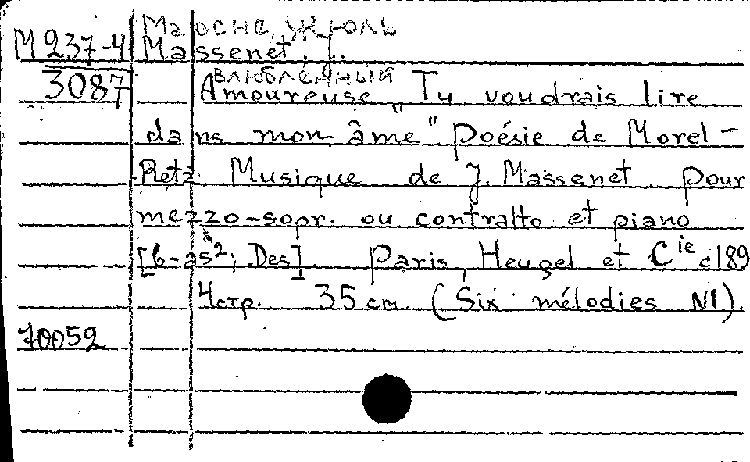 Массне, Жюль
М 237-4 Massenet, J.
влюбленный
3087 Amoureuse „Tu voudrais lire
dans mon âme" Poésie de Morel-
Retz. Musique de J. Massenet pour
mezzo-sopr. ou contralto et piano
[6-as²; Des]. Paris, Heugel et Cie c189
4стр. 35 cm. (Six mélodies N1).
70052